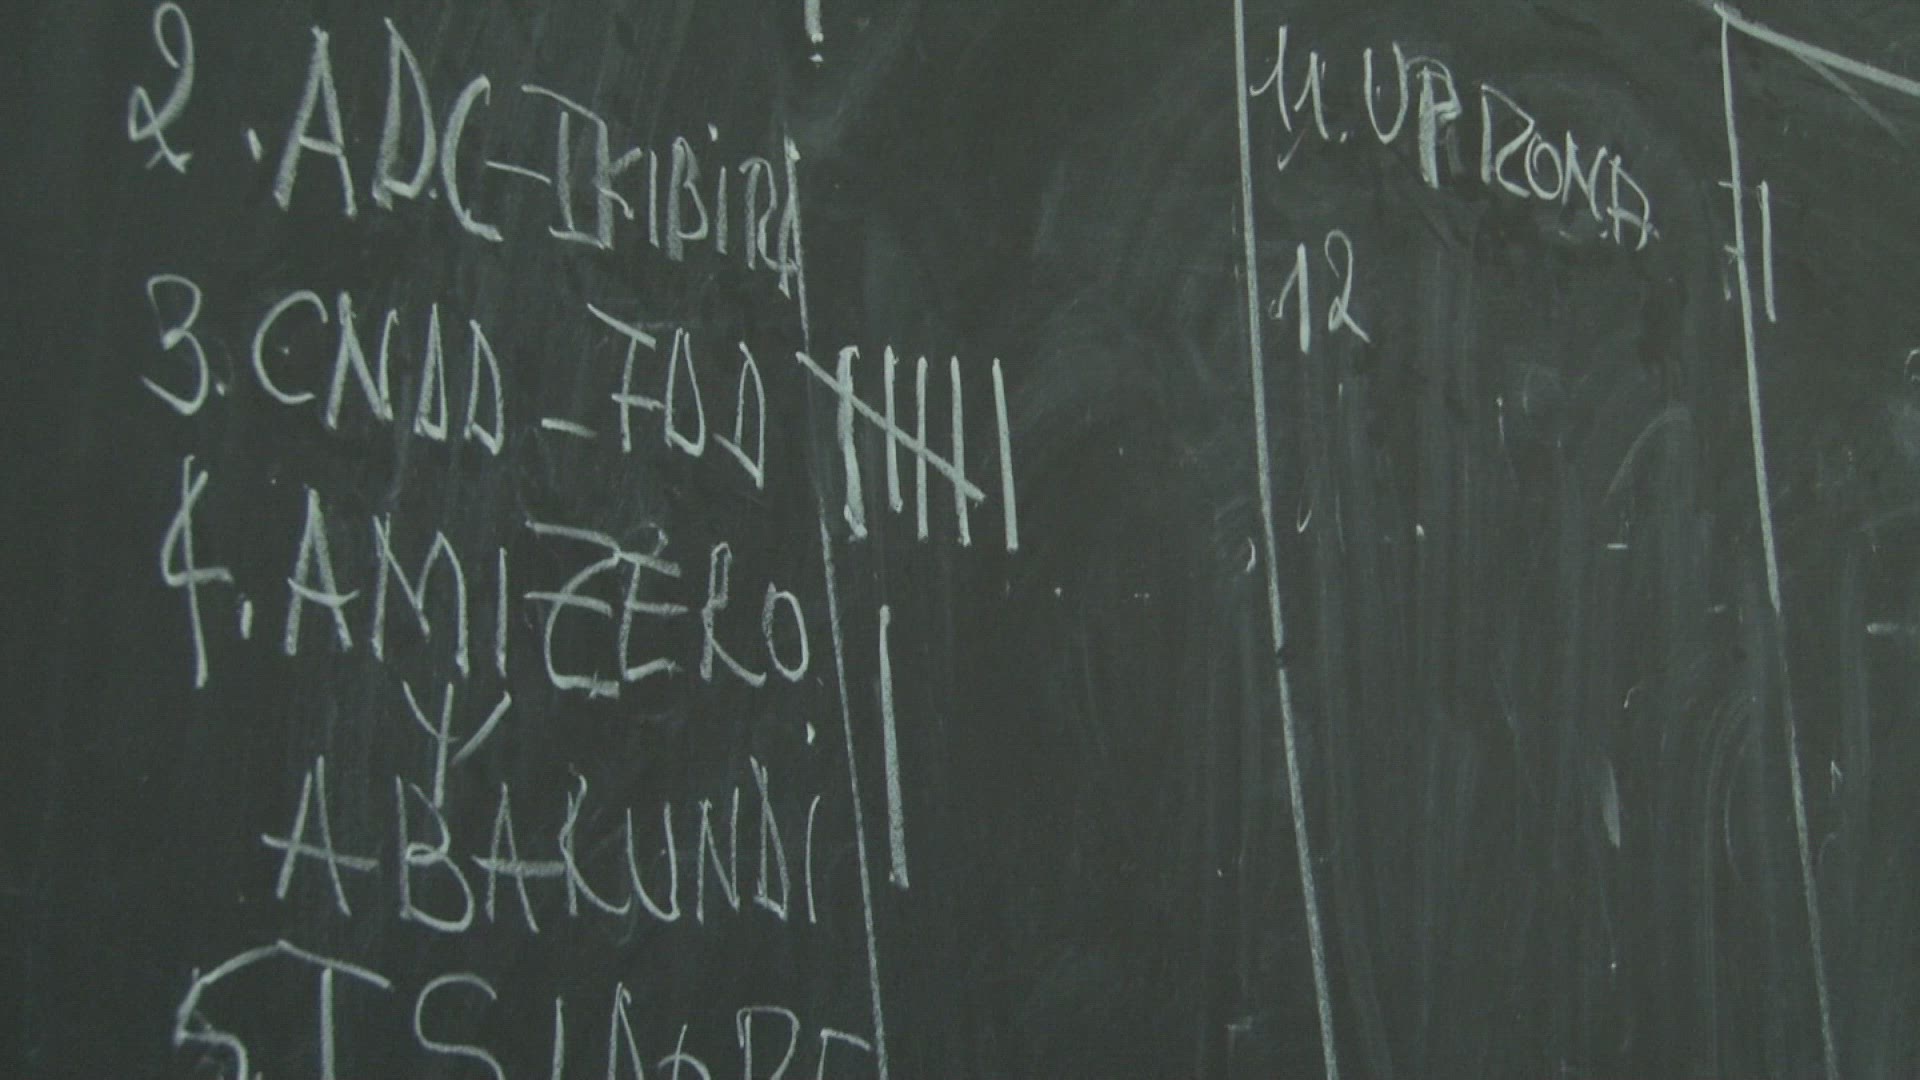 2. ADC-IKIBIRI
3. CNDD-FDD
4. AMIZERO
Y
ABARUNDI
11. UPRONA
12